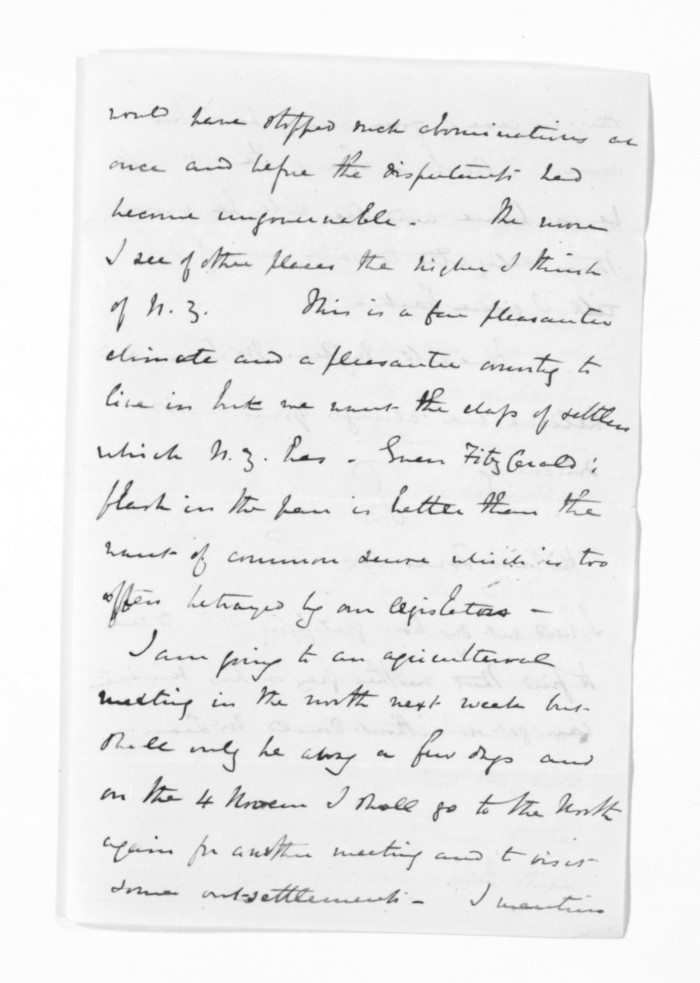 would have stopped such abominations at
once and before the disputants had
become ungovernable. The more
I see of other places the higher I think
of N. Z. This is a far pleasanter
climate and a pleasanter country to
live in but we want the class of settlers
which N. Z. has - Even FitzGerald's
flash in the pan is better than the
want of common sense which is too
often betrayed by our legislators -
I am going to an agricultural
meeting in the north next week but
shall only be away a few days and
on the 4 Novem I shall go to the North
again for another meeting and to visit
some out-settlements - I mention